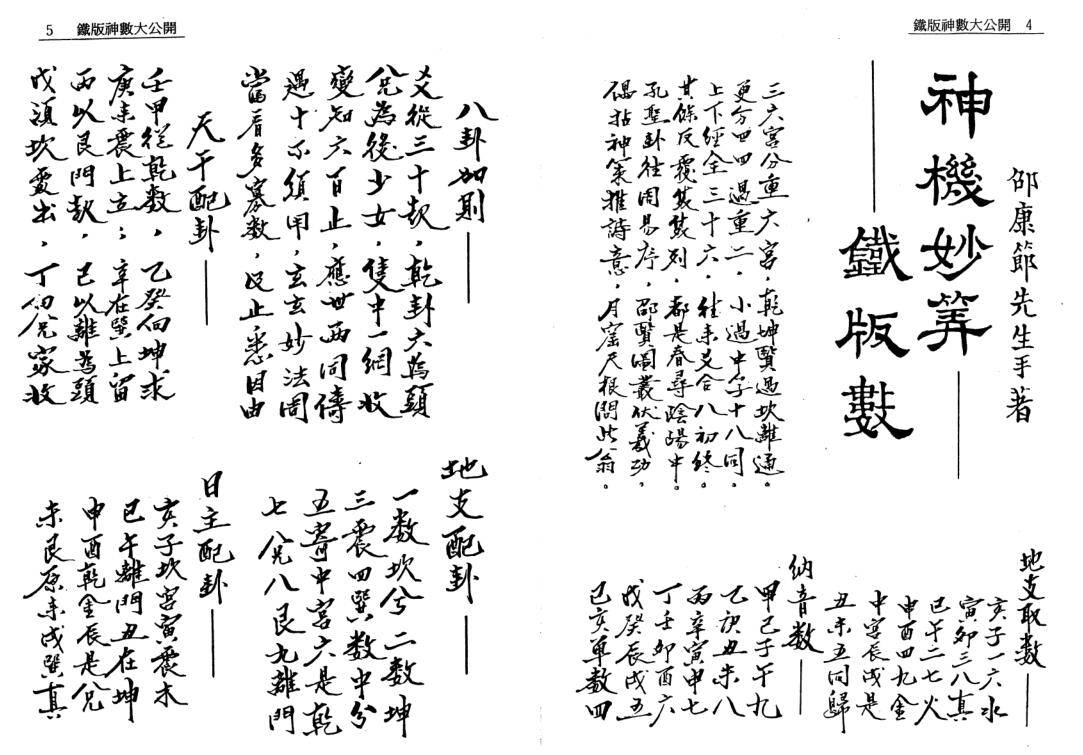 鐵版神數大公開 4
邵康節先生手著
神機妙算
鐵版數
三六宮分重六宮，乾坤賢過坎離通。
更分四四過重二，小過中孚十八同。
上下經全三十六，往來爻合八初終。
其餘反覆  列，都是春尋陰陽中。
孔聖卦往周易序，邵賢圖叢伏羲功，
偈拈神策推詩意，月窟天根問此翁。
地支取數
亥子一六水
寅卯三八真
巳午二七火
申酉四九金
中宮辰戌是
丑未五同歸
納音數
甲己子午九
乙庚丑未八
丙辛寅申七
丁壬卯酉六
戊癸辰戌五
巳亥單數四
5 鐵版神數大公開
八卦加則
爻從三十起，乾卦六為頭
兌為後少女，隻中一網收
變知六百止，應世兩同儔
遇十不須用，玄玄妙法周
當看多寡數，止悉因由
天干配卦
壬甲從乾數，乙癸向坤求
庚來震上立；辛在巽上留
丙以艮門起，己以離為頭
戊須坎處出，丁向兌家收
地支配卦
一數坎兮二數坤
三震四巽數中兮
五寄中宮六是乾
七兌八艮九離門
日主配卦
亥子坎宮寅震木
巳午離門丑在坤
申酉乾金辰是兌
未艮原來戌巽真